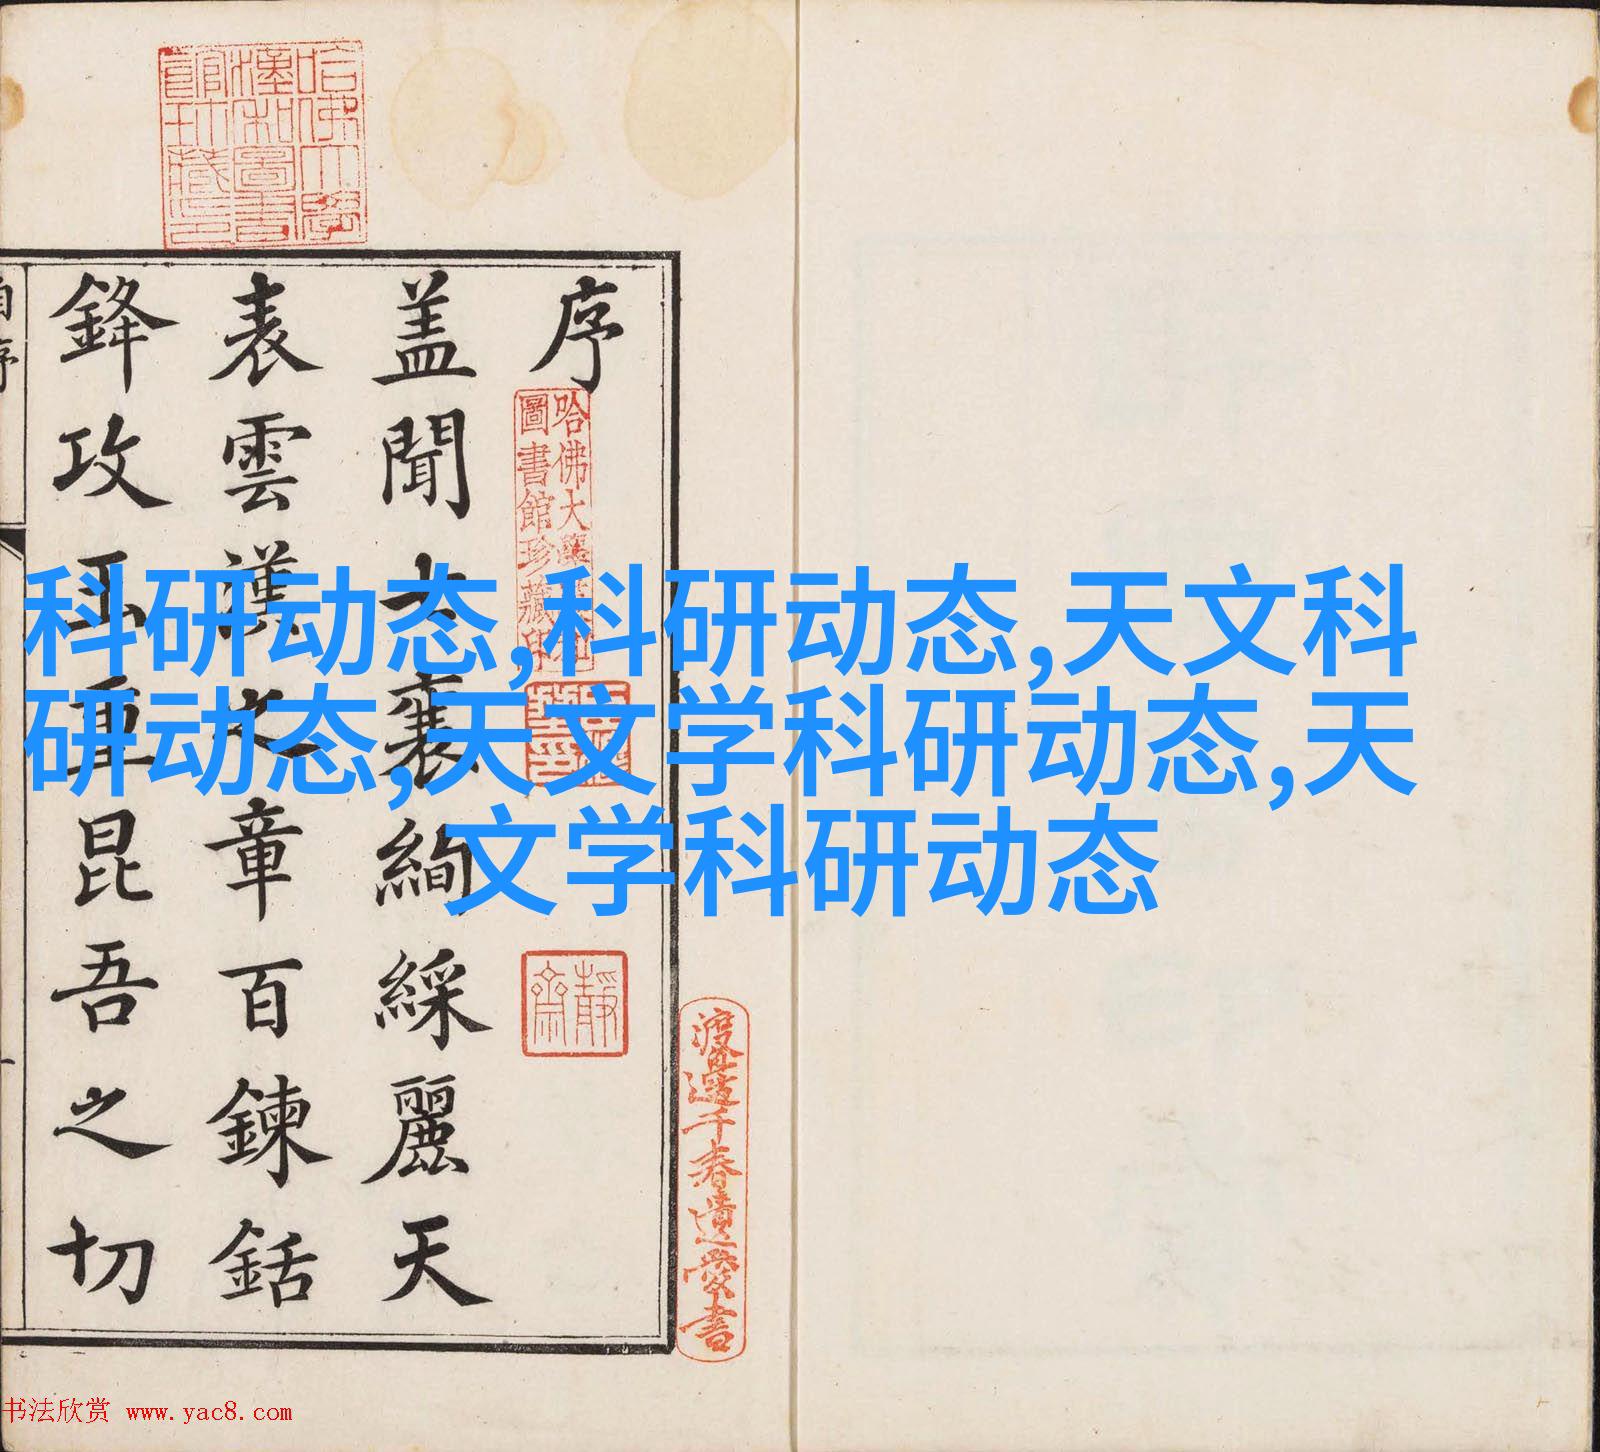 哈佛大學
漢和圖書
館珍藏印
序
哈佛大學漢和
圖書館珍藏印
靜齋
渡邊千春遺愛書
盖聞七襄絢綵麗天
表雲漢之章百鍊銛
鋒攻玉重昆吾之切
自序
科研动态,科研动态,天文科
研动态,天文学科研动态,天
文学科研动态
书法欣赏 www.yac8.com